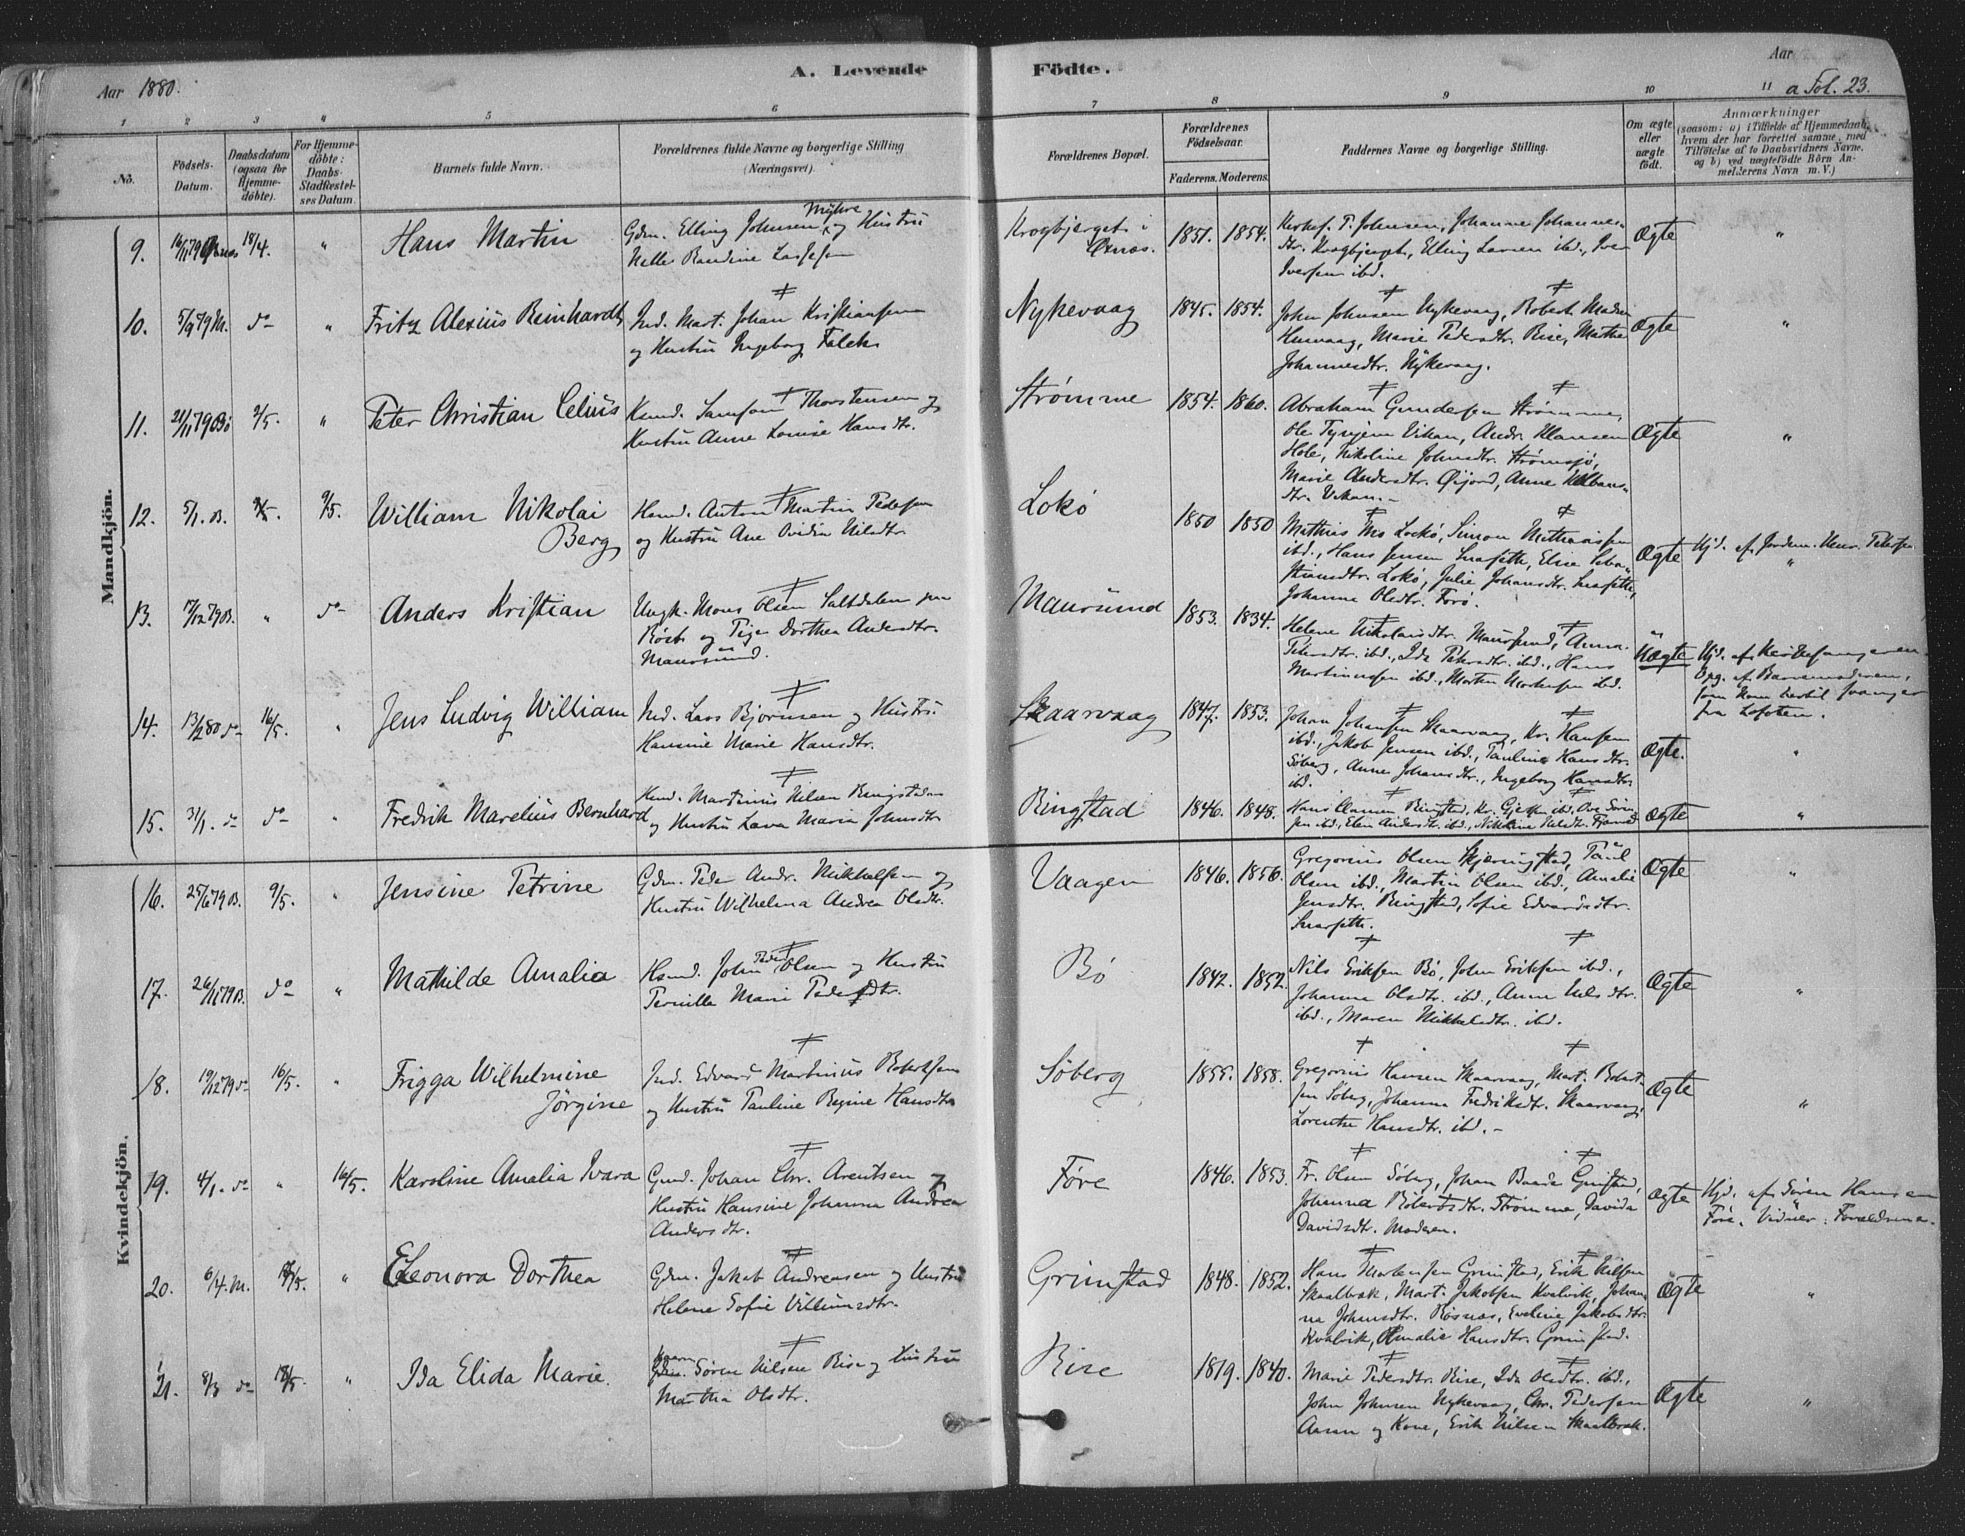 Aar 1880.
A. Levende Födte.
Aar
a Fol. 23.
1 2 3 4 5 6 7 8 9 10 11
No.
Födsels-Datum.
Daabsdatum (ogsaa for Hjemmedöbte).
For Hjemmedöbte: Daabs-Stadfæstelses Datum.
Barnets fulde Navn.
Forældrenes fulde Navne og borgerlige Stilling (Næringsvei).
Forældrenes Bopæl.
Forældrenes Födselsaar.
Faderens. Moderens.
Faddernes Navne og borgerlige Stilling.
Om ægte eller uægte födt.
Anmærkninger
(saasom: a) i Tilfælde af Hjemmedaab, hvem der har forrettet samme, med Tilföielse af to Daabsvidners Navne, og b) ved uægtefödte Börn Anmelderens Navn m. V.)
Mandkjön.
9. 18/4. " Hans Martin
Gdm. Elling Johnsen Myhre og Hustru
Krogbjerget i Øxnæs. 1851. 1854.
Elling Larsen ibd.,
Iversen ibd.
Ægte "
10. 5/9 79 M. do " Fritz Alexius Reinhardt
Ind. Mart. Johan Kristiansen
og Hustru Ingeborg Falch
Nykevaag 1845. 1854.
John Johnsen Nykevaag, Robert Madsen
Husvaag, Marie Pedersdtr. Rise, Mathea
Johannesdtr. Nykevaag.
Ægte "
11. 21/11 79 Bö 2/5. " Peter Christian Celius
Samson Thorstensen og
Hustru Anne Louise Hansdtr.
Strømme 1854. 1860.
Abraham Gundersen Strømme,
Vikan, Andr. Hansen
Hole, Nikoline Johnsdtr. Strømsjø,
Marie Andersdtr. Øijord, Anne
dtr. Vikan.-
Ægte "
12. 5/1. B. 9/5. William Nikolai Berg
Hsmd. Anton Martin Pedersen
og Hustru Ane Ovidia Nilsdtr.
Lokø 1850 1850
Simon Mathiassen
ibd., Hans Jensen Snarseth, Elise Sebastiansdtr. Lokø, Julie Johansdtr. Snarseth,
Johanna Olsdtr. Forø.
Ægte Hjd. af Jordem.
13. 17/12 79 B. " do Anders Kristian
Ungk. Mons Olsen Saltdalen paa
Röst og Pige Dorthea Andersdtr.
Maursund.
Maursund 1853. 1834.
Helene Nikolaisdtr. Maursund, Anna
Pedersdtr. ibd., Ida Pedersdtr. ibd., Hans
Martinussen ibd., Morten ibd.
Uægte Hjd. af Kirkesangeren.
Opg. af Barnemoderen,
som kom hertil svanger
fra Lofoten.
14. 13/2 80 do 16/5. " Jens Ludvig William
Ind. Lars Bjørnsen og Hustru
Hansine Marie Hansdtr.
Skaarvaag 1847. 1853.
Johan Johansen Skaarvaag, Kr. Hansen
ibd., Jakob Jensen ibd., Pauline Hansdtr.
Søberg, Anne Johansdtr., Ingeborg Hansdtr.
ibd.
Ægte. "
15. 31/1. do do " Fredrik Marelius Bernhard
Martinus Nilsen Ringstad
og Hustru Lava Maria Johnsdtr.
Ringstad 1846. 1848.
Ringstad, Kr. ibd.
Ægte "
Kvindekjön.
16. 25/6 79 B. 9/5. " Jensine Petrine
Gdm. Peder Andr. Mikkelsen og
Hustru Wilhelmina Andrea Olsdtr.
Vaagen 1846. 1856.
Gregorius Olsen Skjæringstad, Paul
Olsen ibd., Martin Olsen ibd., Amalie
Jensdtr. Ringstad, Sofie Edvardsdtr.
Snarseth.
Ægte "
17. 26/11 79 B. do " Mathilde Amalia
Hsmd. John Peder Olsen og Hustru
Pernille Marie Pedersdtr.
Bö 1842. 1852.
Nils Eriksen Bö, John Eriksen ibd.,
Johanna Olsdtr. ibd., Anne Nilsdtr.
ibd., Maren Mikkelsdtr. ibd.
Ægte "
18. 19/12 79 do 16/5. " Frigga Wilhelmine Jörgine
Ind. Edvard Martinius Robertsen
og Hustru Pauline Regine Hansdtr.
Söberg 1855. 1858.
Gregorius Hansen Skaarvaag, Mart. Robertsen Söberg, Johanna Fredriksdtr. Skaarvaag,
Lorentse Hansdtr. ibd.-
Ægte "
19. 4/1. do " 16/5. Karoline Amalia Ivara
Gmd. Johan Chr. Arentsen og
Hustru Hansine Johanna Andrea
Andersdtr.
Føre 1846. 1853.
Fr. Olsen Söberg, Johan Baade Grimstad,
Johanna Robertsdtr. Strømme, Davida
Davidsdtr. Maderen.
Ægte Hjd. af Søren Hansen
Føre. Vidner: Forældrene.
20. 6/4. M. 18/5. " Eleonora Dorthea
Gdm. Jakob Andreasen og Hustru
Helene Sofie Villumsdtr.
Grimstad 1848. 1852.
Hans Mortensen Grimstad, Erik Nilsen
Skaalbrak, Mart. Jakobsen Kvalvik, Johanna Johnsdtr. Røsnæs, Eveline Jakobsdtr.
Kvalvik, Amalie Hansdtr. Grimstad.
Ægte "
21. 8/3 do 18/5. " Ida Elida Marie.
Søren Nilsen Rise og Hustru
Martha Olsdtr.
Rise 1819. 1840.
Marie Pedersdtr. Rise, Ida Olsdtr. ibd.,
John Johnsen Nykevaag, Chr. Pedersen
Aasan og Kone, Erik Nilsen Skaalbrak.
Ægte "